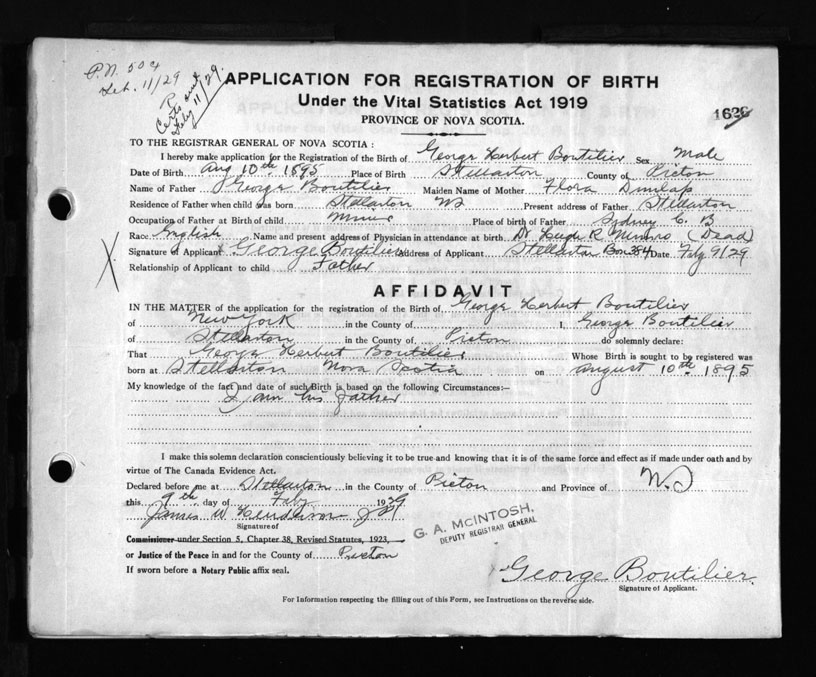 P.N. 504
Feb. 11/29
Certs and
Feby 11/29.
APPLICATION FOR REGISTRATION OF BIRTH
Under the Vital Statistics Act 1919
PROVINCE OF NOVA SCOTIA.
TO THE REGISTRAR GENERAL OF NOVA SCOTIA :
I hereby make application for the Registration of the Birth of George Herbert Boutilier Sex Male
Date of Birth Aug 10th 1895 Place of Birth Stellarton County of Picton
Name of Father George Boutilier Maiden Name of Mother Flora Dunlap
Residence of Father when child was born Stellarton NS Present address of Father Stellarton
Occupation of Father at Birth of child Miner Place of birth of Father Sydney C. B
Race English Name and present address of Physician in attendance at birth Dr Hugh R Munro (Dead)
Signature of Applicant George Boutilier Address of Applicant Stellarton Box 384 Date Feby 9/29
Relationship of Applicant to child Father
AFFIDAVIT
IN THE MATTER of the application for the registration of the Birth of George Herbert Boutilier
of New York in the County of I, George Boutilier
of Stellarton in the County of Picton do solemnly declare:
That George Herbert Boutilier Whose Birth is sought to be registered was
born at Stellarton Nova Scotia on august 10th 1895
My knowledge of the fact and date of such Birth is based on the following Circumstances:—
I am his father
I make this solemn declaration conscientiously believing it to be true and knowing that it is of the same force and effect as if made under oath and by
virtue of The Canada Evidence Act.
Declared before me at Stellarton in the County of Picton and Province of N.S
this 9th day of Feby 1929
James W Henderson J P
Signature of
Commissioner under Section 5, Chapter 38, Revised Statutes, 1923,
or Justice of the Peace in and for the County of Picton
If sworn before a Notary Public affix seal.
G. A. McINTOSH,
DEPUTY REGISTRAR GENERAL
George Boutilier
Signature of Applicant.
For Information respecting the filling out of this Form, see Instructions on the reverse side.